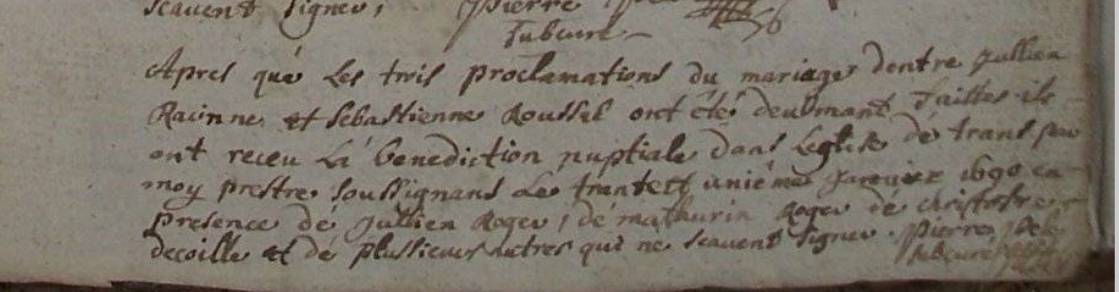 scauent signer, pierre
subcuré
Apres que Les trois proclamations du mariage dentre Jullien
Racinne et sebastienne Roussel ont été deubmant faittes ils
ont receu La benediction nuptiale dans Leglise de trans par
moy prestre soussignant Le trantett uniéme januier 1690 en
presence de Jullien Roger, de mathurin Roger de christofre
decoille et de plussieurs autres qui ne scauent signer. pierre
subcuré